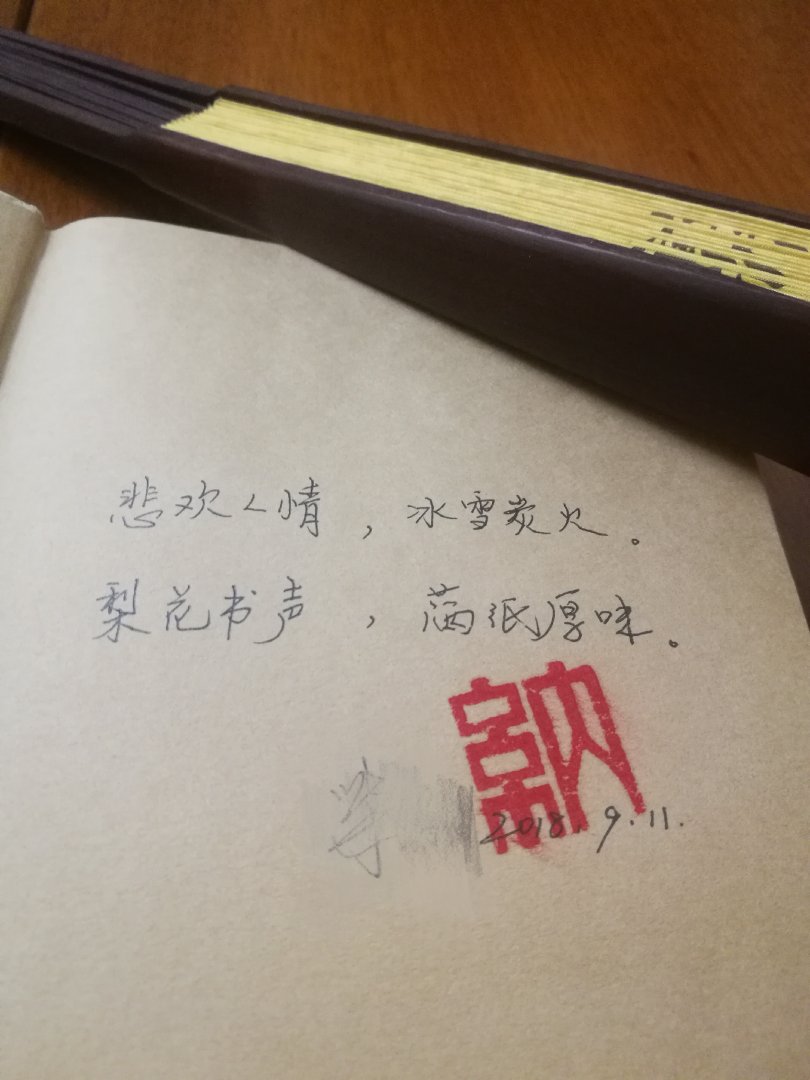 悲欢人情，冰雪炭火。
梨花书声，满纸厚味。
2018.9.11.